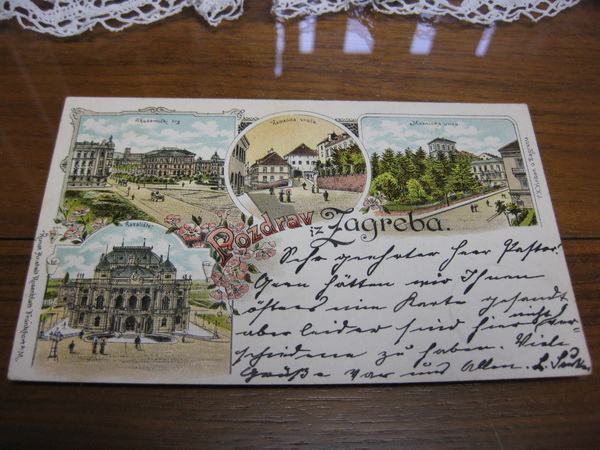 Akademički trg
Kamenita vrata
Mesnička ulica
Kazalište
Pozdrav iz Zagreba.
Sehr geehrter Herr Pastor!
Gern hätten wir Ihnen
öfters eine Karte gesandt
aber leider sind hier nicht ver-
schiedene zu haben. Viele
Grüße von uns Allen. L.